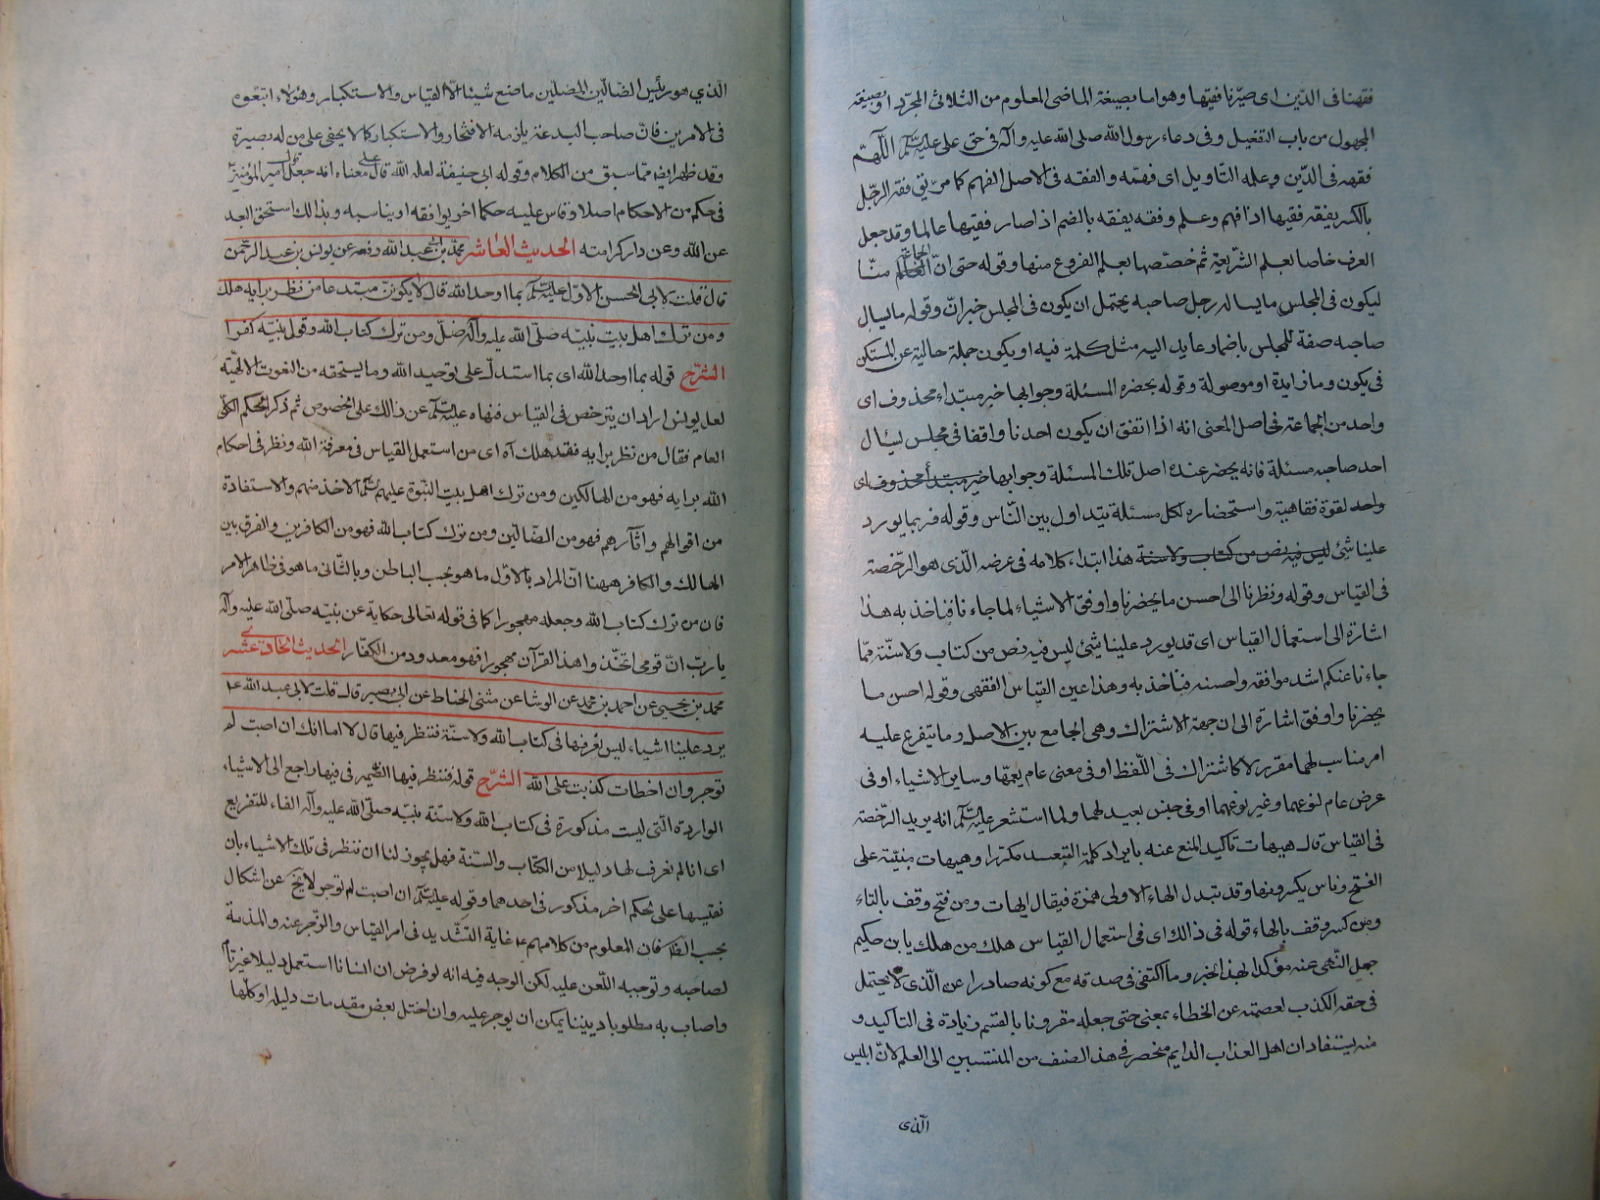 فقهنا فى الدّين اى صيّرنا فقيها وهو اما بصيغة الماضى المعلوم من الثلاثى المجرّد او بصيغة
المجهول من باب التفعيل وفى دعاء رسول الله صلى الله عليه وآله فى حق على عليه السلام اللّهمّ
فقهه فى الدّين وعلمه التاويل اى فهمه والفقه فى الاصل الفهم كما مر يق فقه الرجل
بالكسر يفقه فقيها اذا فهم وعلم وفقه يفقه بالضم اذا صار فقيها عالما وقد جعل
العرف خاصا بعلم الشريعة ثم خصّصها بعلم الفروع منها وقوله حتى انّ الجماعة منّا
ليكون فى المجلس ما يسال رجل صاحبه يحتمل ان يكون فى المجلس خبر انّ وقوله ما يسال
صاحبه صفة للمجلس باضمار عايد اليه مثل كلمة فيه او يكون جملة حالية عن المستكن
فى يكون وما زايدة او موصولة وقوله بحضره المسئلة وجوابها خبر مبتداء محذوف اى
واحد من الجماعة فى اصل المعنى انه اذا اتفق ان يكون احدنا واقفا فى مجلس يسال
احد صاحبه مسئلة فانه يحضر عنده اصل تلك المسئلة وجوابها خبر مبتدأ محذوف اى
واحد لقوة فقاهيته واستحضاره لكل مسئلة يتداول بين النّاس وقوله فربما يورد
علينا شئ ليس فيه نص من كتاب ولا سنة هذا ابتداء كلامه فى عرضه الّذى هو الرّخصة
فى القياس وقوله ونظرنا الى احسن ما يحضرنا واوفق الاشياء لما جاءنا فناخذ به هذا
اشارة الى استعمال القياس اى قد يورد علينا شئ ليس فيه نص من كتاب ولا سنّة فمّا
جاءنا عنكم اشد موافقه واحسنه فناخذ به وهذا عين القياس الفقهى وقوله احسن ما
يحضرنا واوفق اشارة الى ان جهة الاشتراك وهى الجامع بين الاصل وما يتفرع عليه
امر مناسب لهما مقرر لا كاشتراك فى اللّفظ او فى معنى عام يعمّها وساير الاشياء او فى
عرض عام لنوعهما وغير نوعهما او فى جنس بعيد لهما ولما استشعر عليه السلام انه يريد الرّخصة
فى القياس قال هيهات تأكيد المنع عنه بايراد كلمة التبعيد مكررا وهيهات مبنيّة على
الفتح وناس يكسرونها وقد تبدل الهاء الاولى همزة فيقال ايهات ومن فتح وقف بالتاء
ومن كسر وقف بالهاء قوله فى ذالك اى فى استعمال القياس هلك من هلك يا بن حكيم
جعل النّهى عنه مؤكدا لهذا الخبر وما اكتفى فى صدقه مع كونه صادرا عن الّذى لا يحتمل
فى حقه الكذب لعصمته عن الخطاء بمعنى حتى جعله مقرونا بالقسم زيادة فى التاكيد و
منه يستفاد ان اهل العذاب الدايم منحصر فى هذا الصنف من المنتسبين الى العلم لانّ ابليس
الّذى
الّذي هو رئيس الضالّين المضلّين ما صنع شيئا الّا القياس والاستكبار وهؤلاء اتبعوه
فى الامرين فانّ صاحب البدعة يلزمه الافتخار والاستكبار كما لا يخفى على من له بصيرة
وقد ظهر ايض ممّا سبق من الكلام وقوله ابى حنيفة لعله الله قال على معناه انه جعل قول امير المؤمنين
فى حكم من الاحكام اصلا وقاس عليه حكما اخر يوافقه او يناسبه وبذالك استحق البعد
عن الله وعن دار كرامته الحديث العاشر محمّد بن ابى عبد الله رفعه عن يونس بن عبد الرّحمن
قال قلت لابى الحسن الاوّل عليه السلام بما اوحد الله قال لا يكوننّ مبتدعا من نظر برايه هلك
ومن ترك اهل بيت نبيّه صلّى الله عليه وآله ضلّ ومن ترك كتاب الله وقول نبيّه كفرا
الشرّح قوله بما اوحد الله اى بما استدلّ على توحيد الله وما يستحقه من النعوت الالهيّة
لعل يونس اراد ان يترخص فى القياس فنهاه عليه السلام عن ذالك على الخصوص ثم ذكر الحكم الكلّى
العام فقال من نظر برايه فقد هلك آه اى من استعمل القياس فى معرفة الله ونظر فى احكام
الله برايه فهو من الهالكين ومن ترك اهل بيت النبوّة عليهم السلام الاخذ منهم والاستفادة
من اقوالهم وآثارهم فهو من الضّالين ومن ترك كتاب الله فهو من الكافرين والفرق بين
الهالك والكافر هيهنا انّ المراد بالاوّل ما هو بحسب الباطن وبالثّانى ما هو فى ظاهر الامر
فان من ترك كتاب الله وجعله مهجورا كما فى قوله تعالى حكاية عن نبيّه صلّى الله عليه وآله
يا ربّ انّ قومى اتّخذوا هذا القرآن مهجورا فهو معدود من الكفّار الحديث الحادى عشر
محمد بن يحيى عن احمد بن محمد عن الوشا عن مثنى الحناط عن ابى بصير قال قلت لابى عبد الله ع
يرد علينا اشياء ليس نعرفها فى كتاب الله ولا سنّة فننظر فيها قال لا اما انك ان اصبت لم
توجر وان اخطات كذبت على الله الشرّح قوله فننظر فيها الضّمير فى فيها راجع الى الاشياء
الواردة الّتى ليست مذكورة فى كتاب الله ولا سنّة نبيّه صلّى الله عليه وآله الفاء للتفريع
اى انا لم نعرف لها دليلا من الكتاب والسّنة فهل يجوز لنا ان ننظر فى تلك الاشياء بان
نقيسها على حكم اخر مذكور فى احدهما وقوله عليه السلام ان اصبت لم توجر لا يخ عن اشكال
بحسب الظ فان المعلوم من كلامهم ع غاية التشّديد فى امر القياس والزّجر عنه والمذمة
لصاحبه وتوجيه اللّعن عليه لكن الوجه فيه انه لو فرض ان انسانا استعمل دليلا غيرتام
واصاب به مطلوبا دينيا يمكن ان يوجر عليه وان اختل بعض مقدمات دليله او كلّها